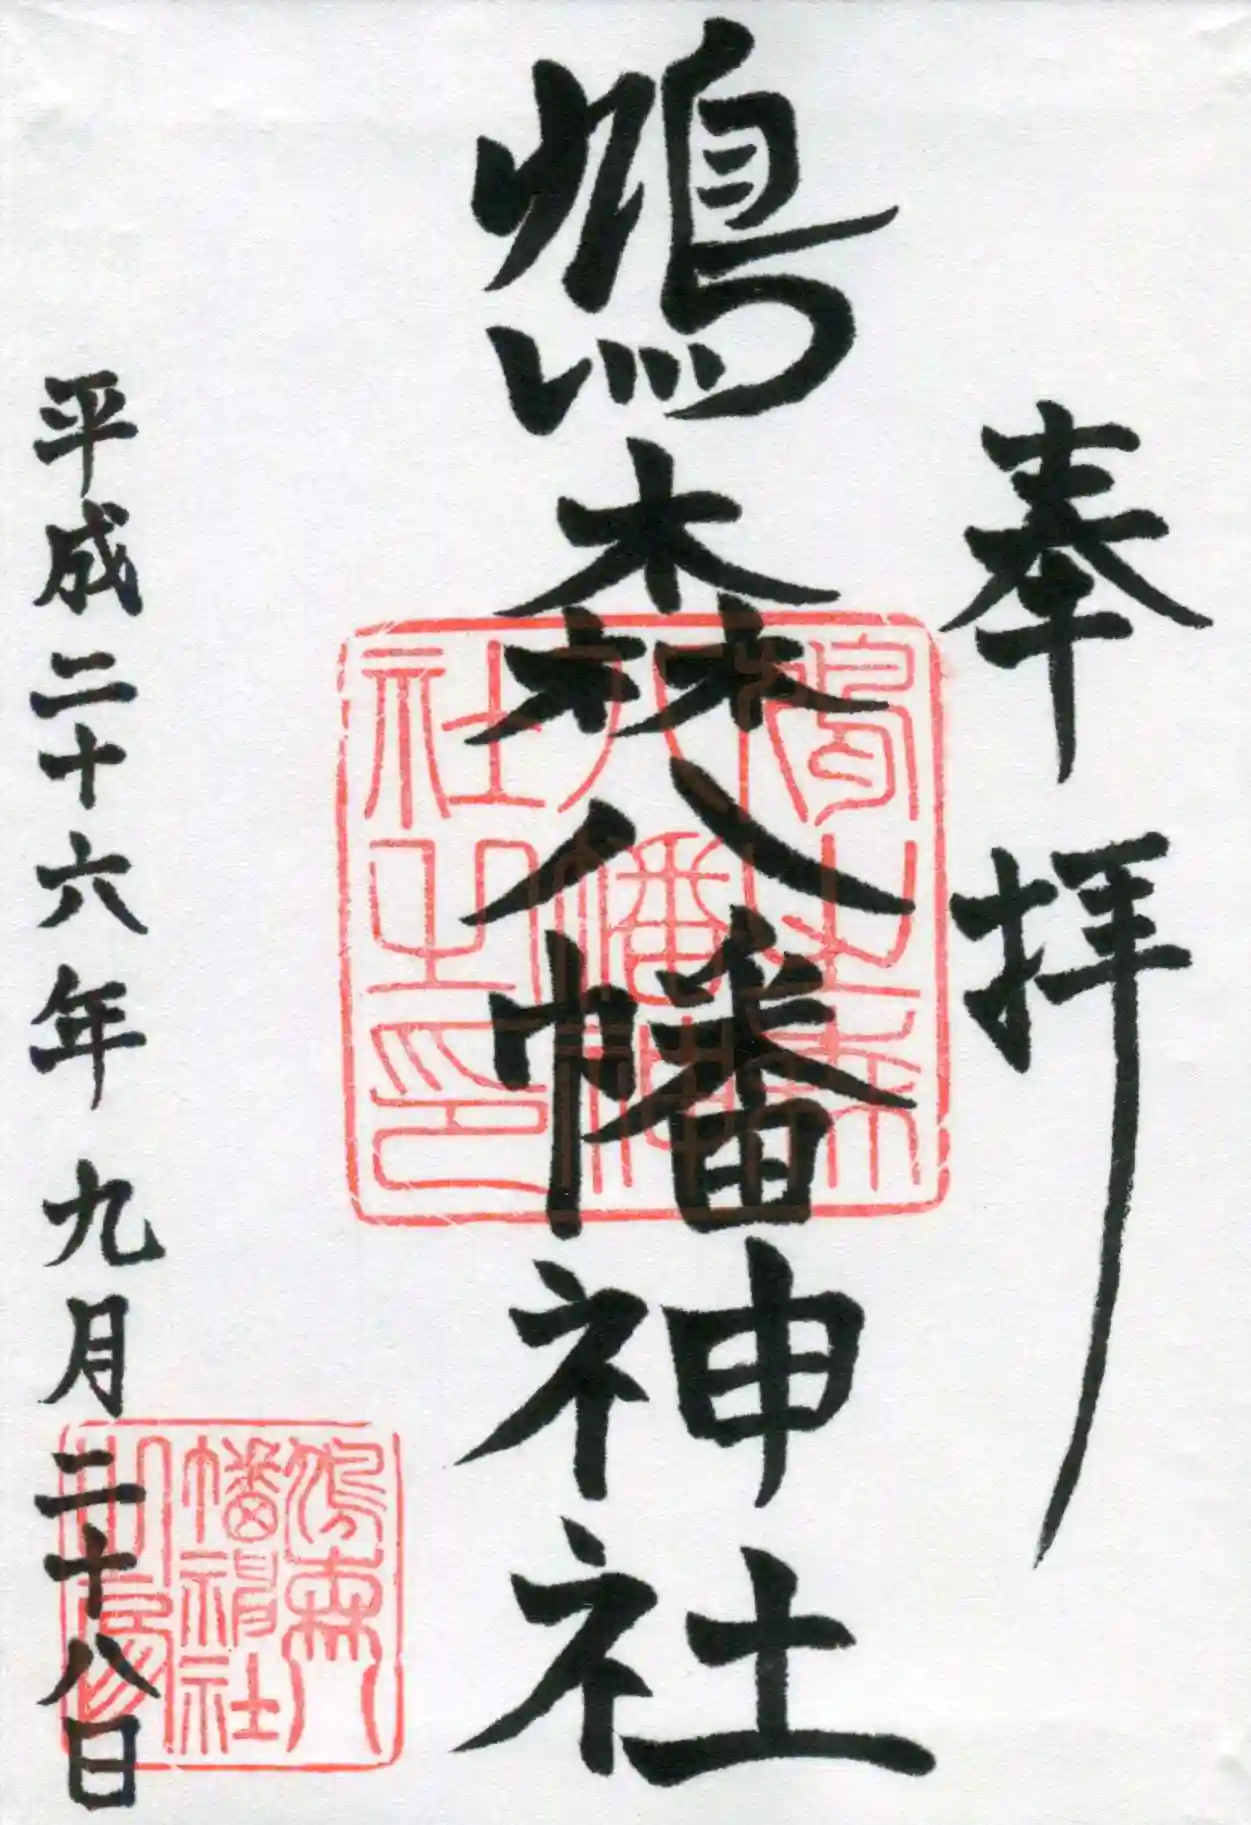 奉拝
鳩森八幡神社
平成二十六年九月二十八日
鳩之森
八幡神
社之印
鳩森八
幡神社